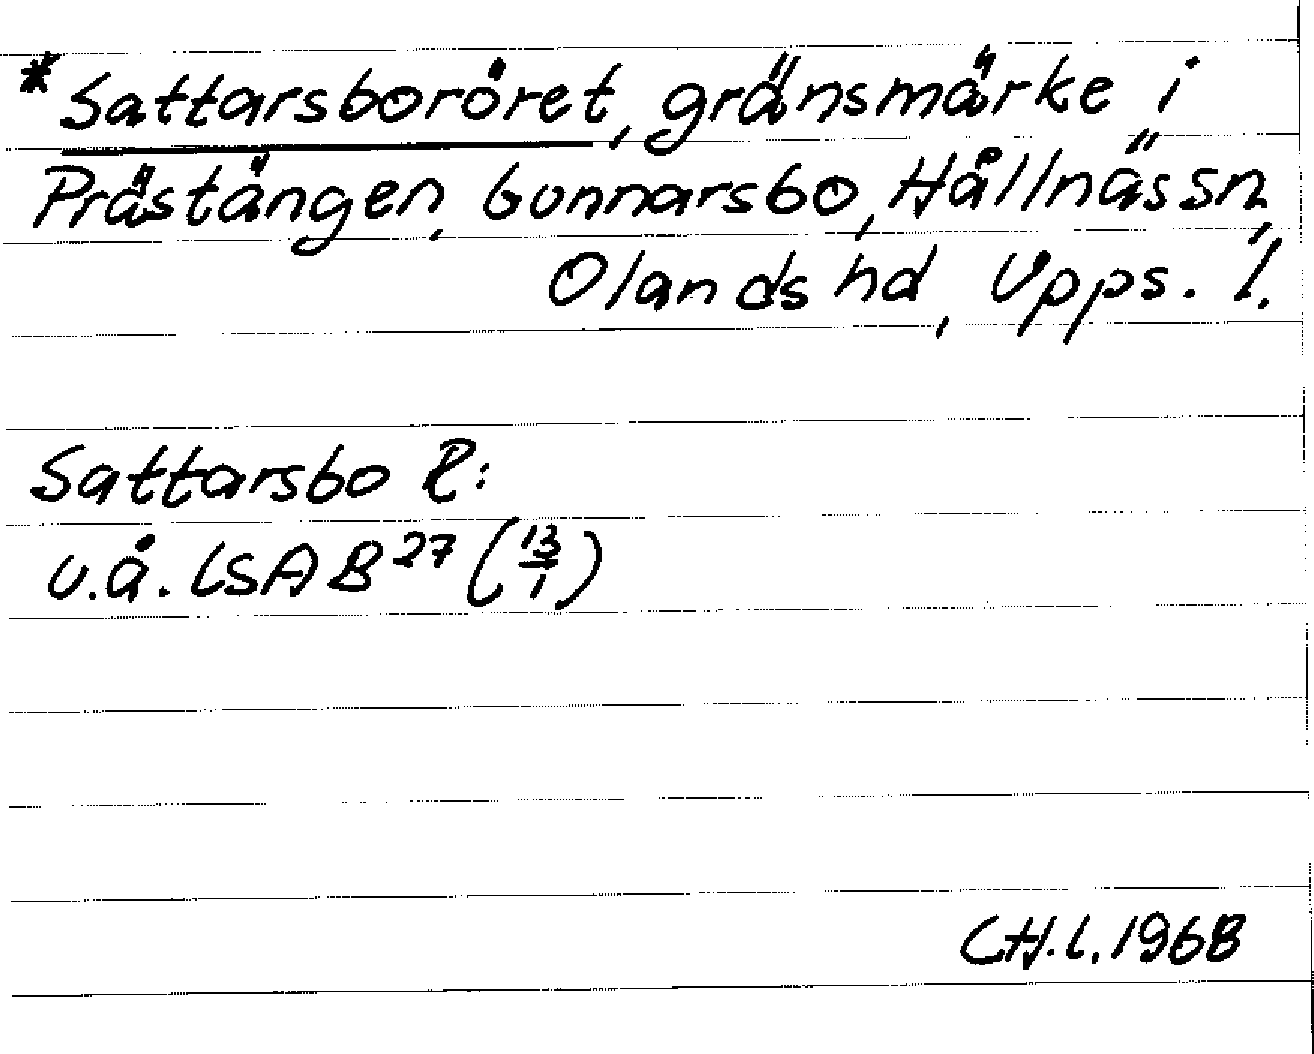 *Sattarsboröret, gränsmärke i
Prästängen, Gunnarsbo, Hållnäs sn,
Olands hd, Upps. l.
Sattarsbo R:
u.å. LSA B27 (13/1)
CH.L. 1968